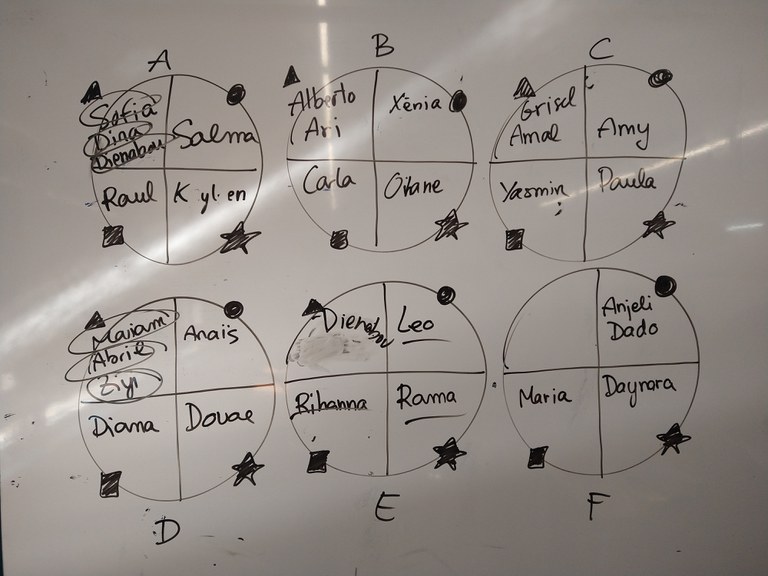 A
Sofia
Dina
Dienabou
Salma
Raul
Kylien
B
Alberto
Ari
Xènia
Carla
Oiane
C
Grisel
Amal
Amy
Yasmin
Paula
Mariam
Abril
Ziyi
Anais
Diana
Douae
D
Dienabou
Leo
Rihanna
Rama
E
Anjeli
Dado
Maria
Daynara
F